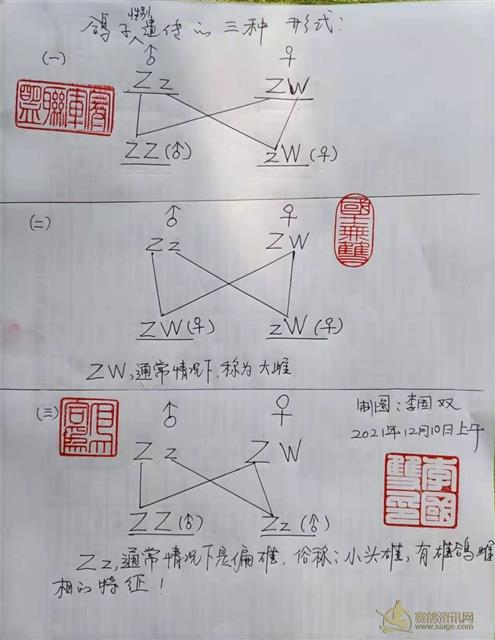 鸽子性别遗传的三种形式:
(一)
♂ ♀
Zz ZW
ZZ(♂) zW(♀)
(二)
♂ ♀
Zz ZW
ZW(♀) zW(♀)
ZW,通常情况下,称为大雌
(三)
♂ ♀
Zz ZW
ZZ(♂) Zz(♂)
制图:李国双
2021年12月10日上午
國士無雙
李國雙印
Zz,通常情况下是偏雄,俗称:小头雄,有雄鸽雌
相的特征!
赛鸽资讯网
www.saige.com